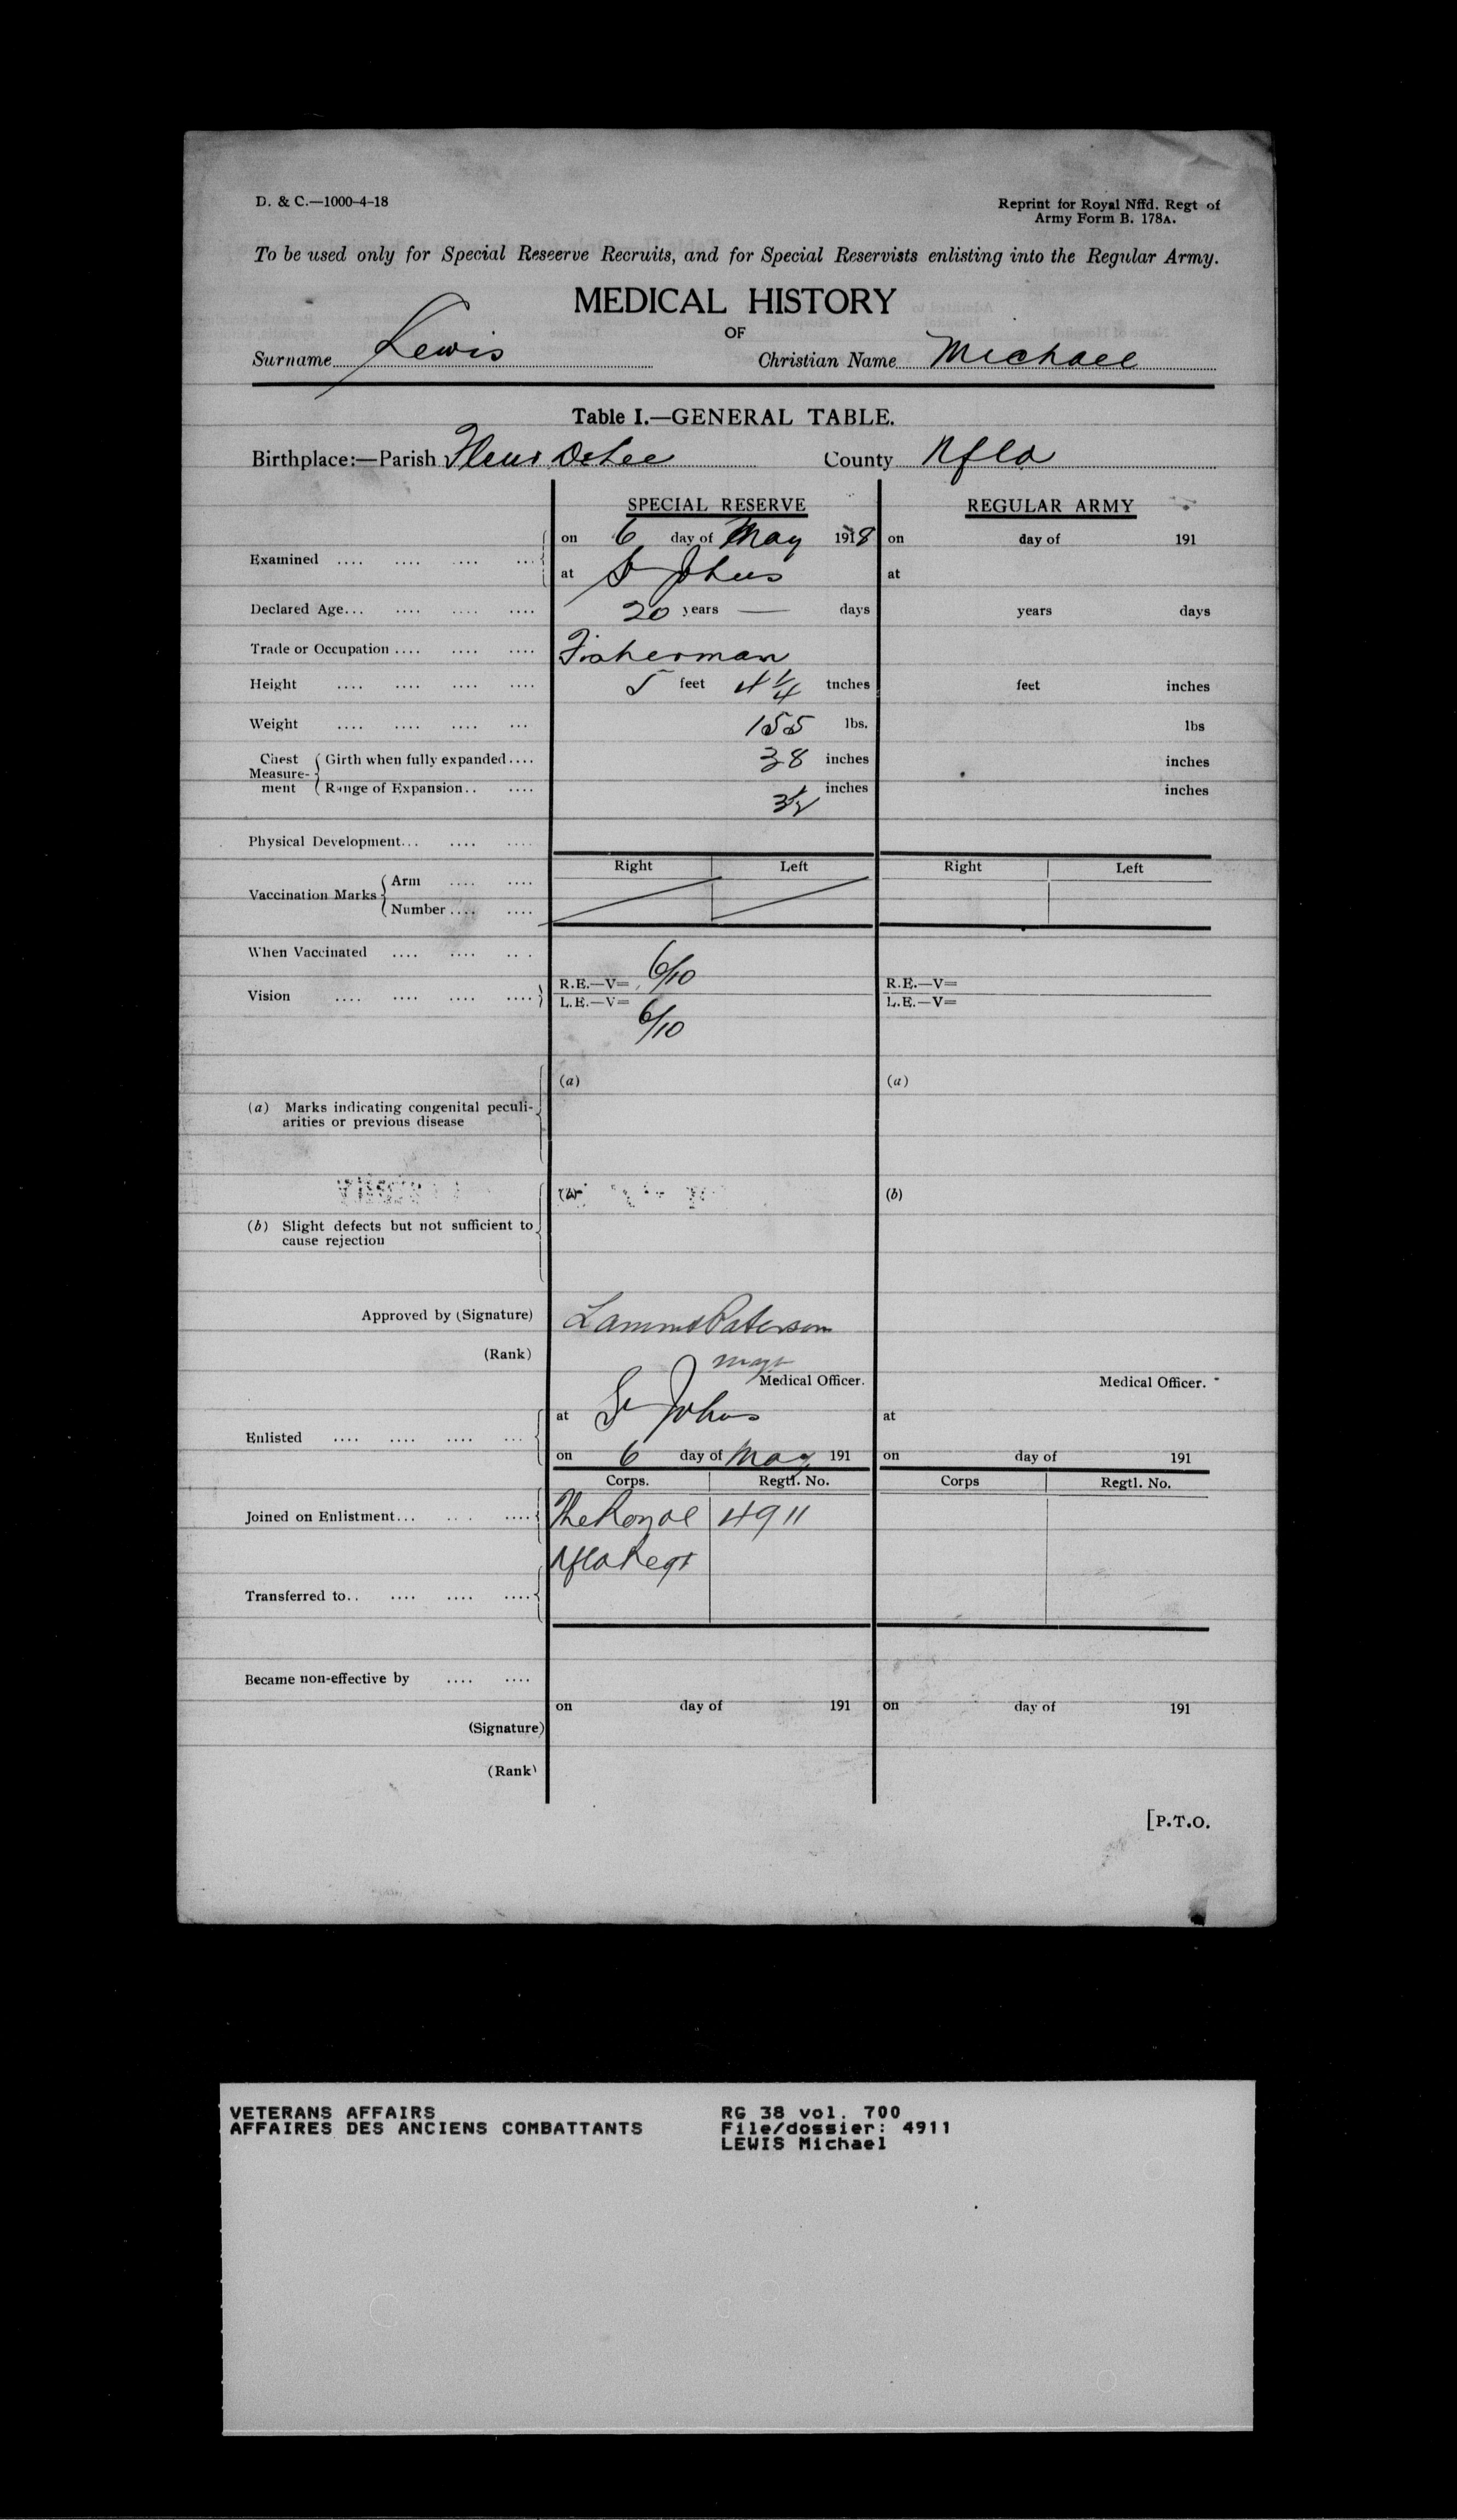 D. & C.—1000-4-18
Reprint for Royal Nffd. Regt of
Army Form B. 178A.
To be used only for Special Reseerve Recruits, and for Special Reservists enlisting into the Regular Army.
MEDICAL HISTORY
OF
Surname Lewis Christian Name Michael
Table I.—GENERAL TABLE.
Birthplace:—Parish Fleur De Lee County Nfld
SPECIAL RESERVE REGULAR ARMY
Examined .... .... .... ... on 6 day of May 1918 on day of 191
at St Johns at
Declared Age... .... .... .... 20 years — days years days
Trade or Occupation .... .... .... Fisherman
Height .... .... .... .... 5 feet 4 1/4 tnches feet inches
Weight .... .... .... ... 155 lbs. lbs
Chest Measurement Girth when fully expanded .... 38 inches inches
Range of Expansion .. .... 3 1/2 inches inches
Physical Development... .... ....
Right Left Right Left
Vaccination Marks Arm .... ....
Number .... ....
When Vaccinated .... .... ...
Vision .... .... .... .... R.E.—V= 6/10 R.E.—V=
L.E.—V= 6/10 L.E.—V=
(a) (a)
(a) Marks indicating congenital peculi-
arities or previous disease
(b) (b)
(b) Slight defects but not sufficient to
cause rejection
Approved by (Signature) Paterson
(Rank) Major
Medical Officer. Medical Officer.
at St Johns at
Enlisted .... .... .... ...
on 6 day of May 191 on day of 191
Corps. Regtl. No. Corps Regtl. No.
Joined on Enlistment... ... .... The Royal 4911
Nfld Regt
Transferred to.. .... .... ....
Became non-effective by .... ....
on day of 191 on day of 191
(Signature)
(Rank)
[P.T.O.
VETERANS AFFAIRS RG 38 vol. 700
AFFAIRES DES ANCIENS COMBATTANTS File/dossier: 4911
LEWIS Michael